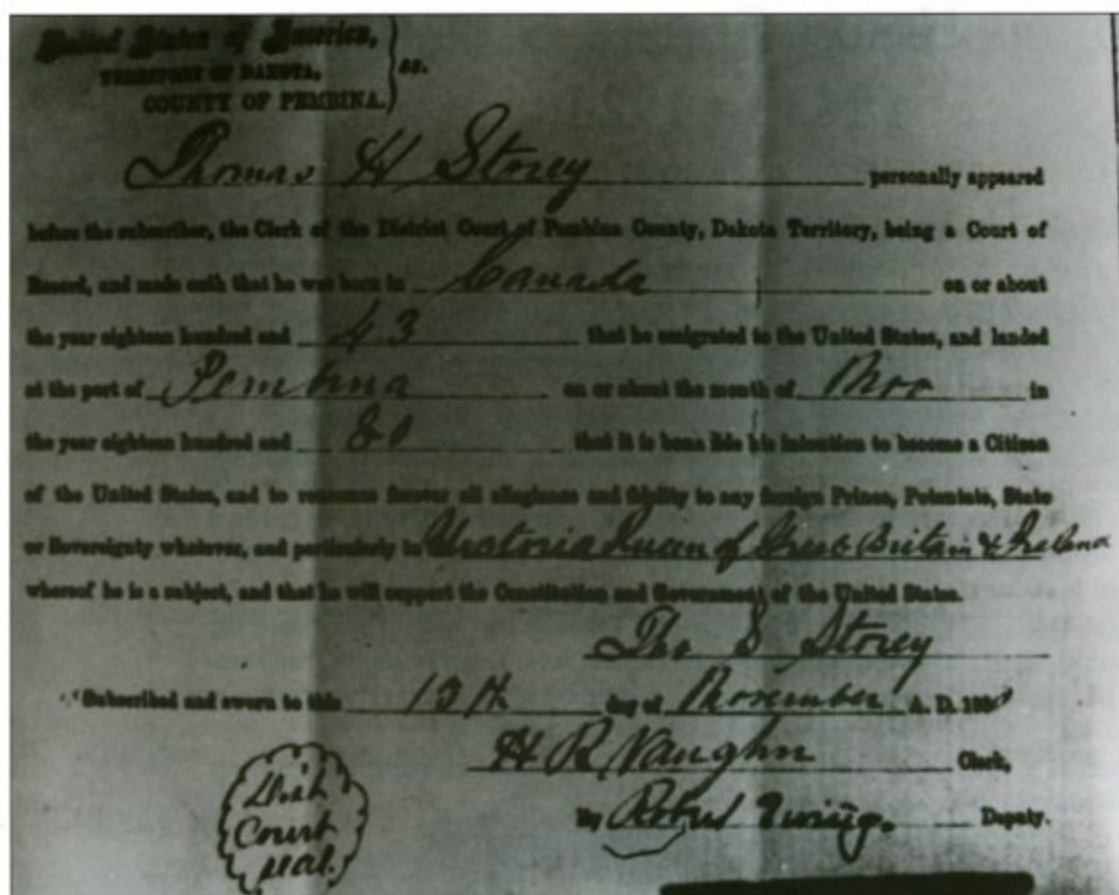 United States of America,
TERRITORY OF DAKOTA, ss.
COUNTY OF PEMBINA.
Thomas H Storey personally appeared
before the subscriber, the Clerk of the District Court of Pembina County, Dakota Territory, being a Court of
Record, and made oath that he was born in Canada on or about
the year eighteen hundred and 43 that he emigrated to the United States, and landed
at the port of Pembina on or about the month of Nov in
the year eighteen hundred and 80 that it is bona fide his intention to become a Citizen
of the United States, and to renounce forever all allegiance and fidelity to any foreign Prince, Potentate, State
or Sovereignty whatever, and particularly to Victoria Queen of Great Britain & Ireland
whereof he is a subject, and that he will support the Constitution and Government of the United States.
Tho S Storey
Subscribed and sworn to this 13th day of November A. D.
H R Vaughn Clerk,
By Robert Ewing. Deputy.
Dist
Court
seal.